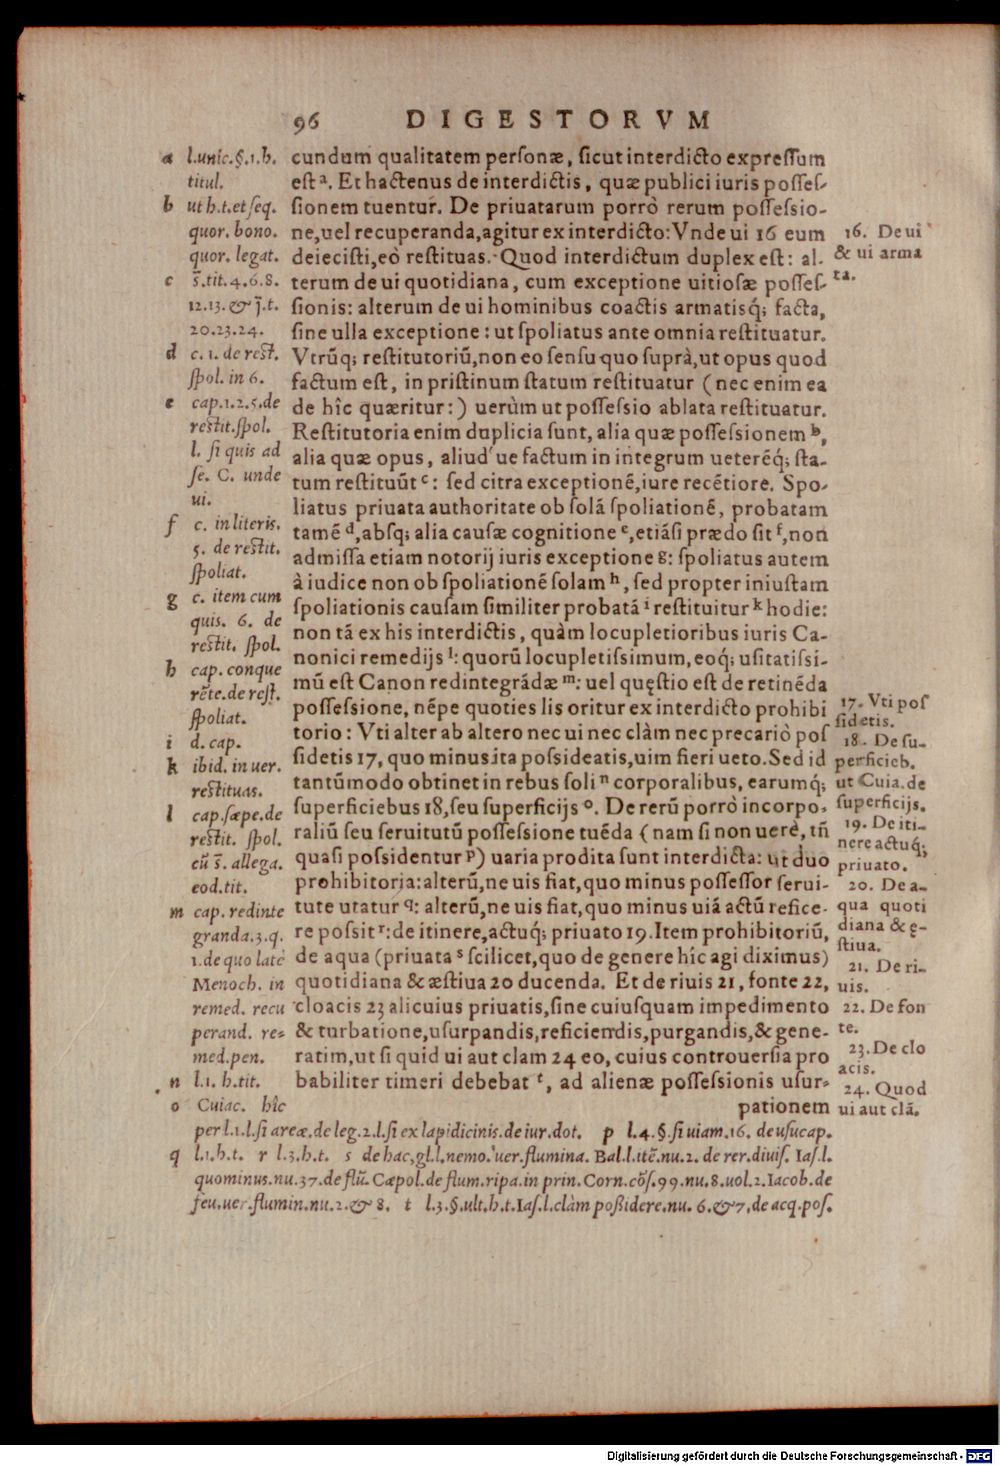 96 DIGESTORVM
cundum qualitatem personæ, sicut interdicto expressum
est ᵃ. Et hactenus de interdictis, quæ publici iuris posses-
sionem tuentur. De priuatarum porrò rerum possessio-
ne,uel recuperanda,agitur ex interdicto: Vnde ui 16 eum
deiecisti,eò restituas. Quod interdictum duplex est: al-
terum de ui quotidiana, cum exceptione uitiosæ posses-
sionis: alterum de ui hominibus coactis armatisq́; facta,
sine ulla exceptione: ut spoliatus ante omnia restituatur.
Vtrũq; restitutoriũ,non eo sensu quo suprà,ut opus quod
factum est, in pristinum statum restituatur (nec enim ea
de hîc quæritur:) uerùm ut possessio ablata restituatur.
Restitutoria enim duplicia sunt, alia quæ possessionem ᵇ,
alia quæ opus, aliud´ue factum in integrum ueterẽq́; sta-
tum restituũt ᶜ: sed citra exceptionẽ,iure recẽtiore. Spo-
liatus priuata authoritate ob solã spoliationẽ, probatam
tamẽ ᵈ,absq; alia causæ cognitione ᵉ,etiãsi prædo sit ᶠ,non
admissa etiam notorij iuris exceptione ᵍ: spoliatus autem
à iudice non ob spoliationẽ solam ʰ, sed propter iniustam
spoliationis causam similiter probatã ⁱ restituitur ᵏ hodie:
non tã ex his interdictis, quàm locupletioribus iuris Ca-
nonici remedijs ˡ: quorũ locupletissimum,eoq́; usitatissi-
mũ est Canon redintegrãdæ ᵐ: uel quęstio est de retinẽda
possessione, nẽpe quoties lis oritur ex interdicto prohibi
torio: Vti alter ab altero nec ui nec clàm nec precariò pos
sidetis 17, quo minus ita possideatis,uim fieri ueto. Sed id
tantũmodo obtinet in rebus soli ⁿ corporalibus, earumq́;
superficiebus 18,seu superficijs ᵒ. De rerũ porrò incorpo-
raliũ seu seruitutũ possessione tuẽda (nam si non uerè, tñ
quasi possidentur ᵖ) uaria prodita sunt interdicta: ut duo
prohibitoria: alterũ,ne uis fiat,quo minus possessor serui-
tute utatur ᑫ: alterũ,ne uis fiat,quo minus uiã actũ refice-
re possit ʳ: de itinere,actuq́; priuato 19. Item prohibitoriũ,
de aqua (priuata ˢ scilicet,quo de genere hîc agi diximus)
quotidiana & æstiua 20 ducenda. Et de riuis 21, fonte 22,
cloacis 23 alicuius priuatis,sine cuiusquam impedimento
& turbatione,usurpandis,reficiendis,purgandis,& gene-
ratim,ut si quid ui aut clam 24 eo, cuius controuersia pro
babiliter timeri debebat ᵗ, ad alienæ possessionis usur-
pationem
a l.unic.§.1.h.
titul.
b ut h.t.et seq.
quor. bono.
quor. legat.
c s̄.tit.4.6.8.
12.13.& j̄.t.
20.23.24.
d c. 1. de rest.
spol. in 6.
e cap.1.2.5.de
restit.spol.
l. si quis ad
se. C. unde
ui.
f c. in literis.
5. de restit.
spoliat.
g c. item cum
quis. 6. de
restit. spol.
h cap. conque
rẽte.de rest.
spoliat.
i d. cap.
k ibid. in uer.
restituas.
l cap.sæpe.de
restit. spol.
cũ s̄. allega.
eod.tit.
m cap. redinte
granda.3.q.
1.de quo latè
Menoch. in
remed. recu
perand. re-
med.pen.
n l.1. h.tit.
o Cuiac. hîc
per l.1.l.si areæ.de leg.2.l.si ex lapidicinis.de iur.dot. p l.4.§.si uiam.16. de usucap.
q l.1.h.t. r l.3.h.t. s de hac,gl.l.nemo.uer.flumina. Bal.l.itẽ.nu.2. de rer.diuis. Ias.l.
quominus.nu.37.de flũ. Cæpol.de flum.ripa.in prin. Corn.cõs.99.nu.8.uol.2.Iacob.de
feu.uer.flumin.nu.2.& 8. t l.3.§.ult.h.t.Ias.l.clàm possidere.nu. 6.& 7.de acq.pos.
16. De ui
& ui arma
ta.
17. Vti pos
sidetis.
18. De su-
perficieb.
ut Cuia.de
superficijs.
19. De iti-
nere actuq́;
priuato.
20. De a-
qua quoti
diana & ę-
stiua.
21. De ri-
uis.
22. De fon
te.
23. De clo
acis.
24. Quod
ui aut clã.
Digitalisierung gefördert durch die Deutsche Forschungsgemeinschaft - DFG